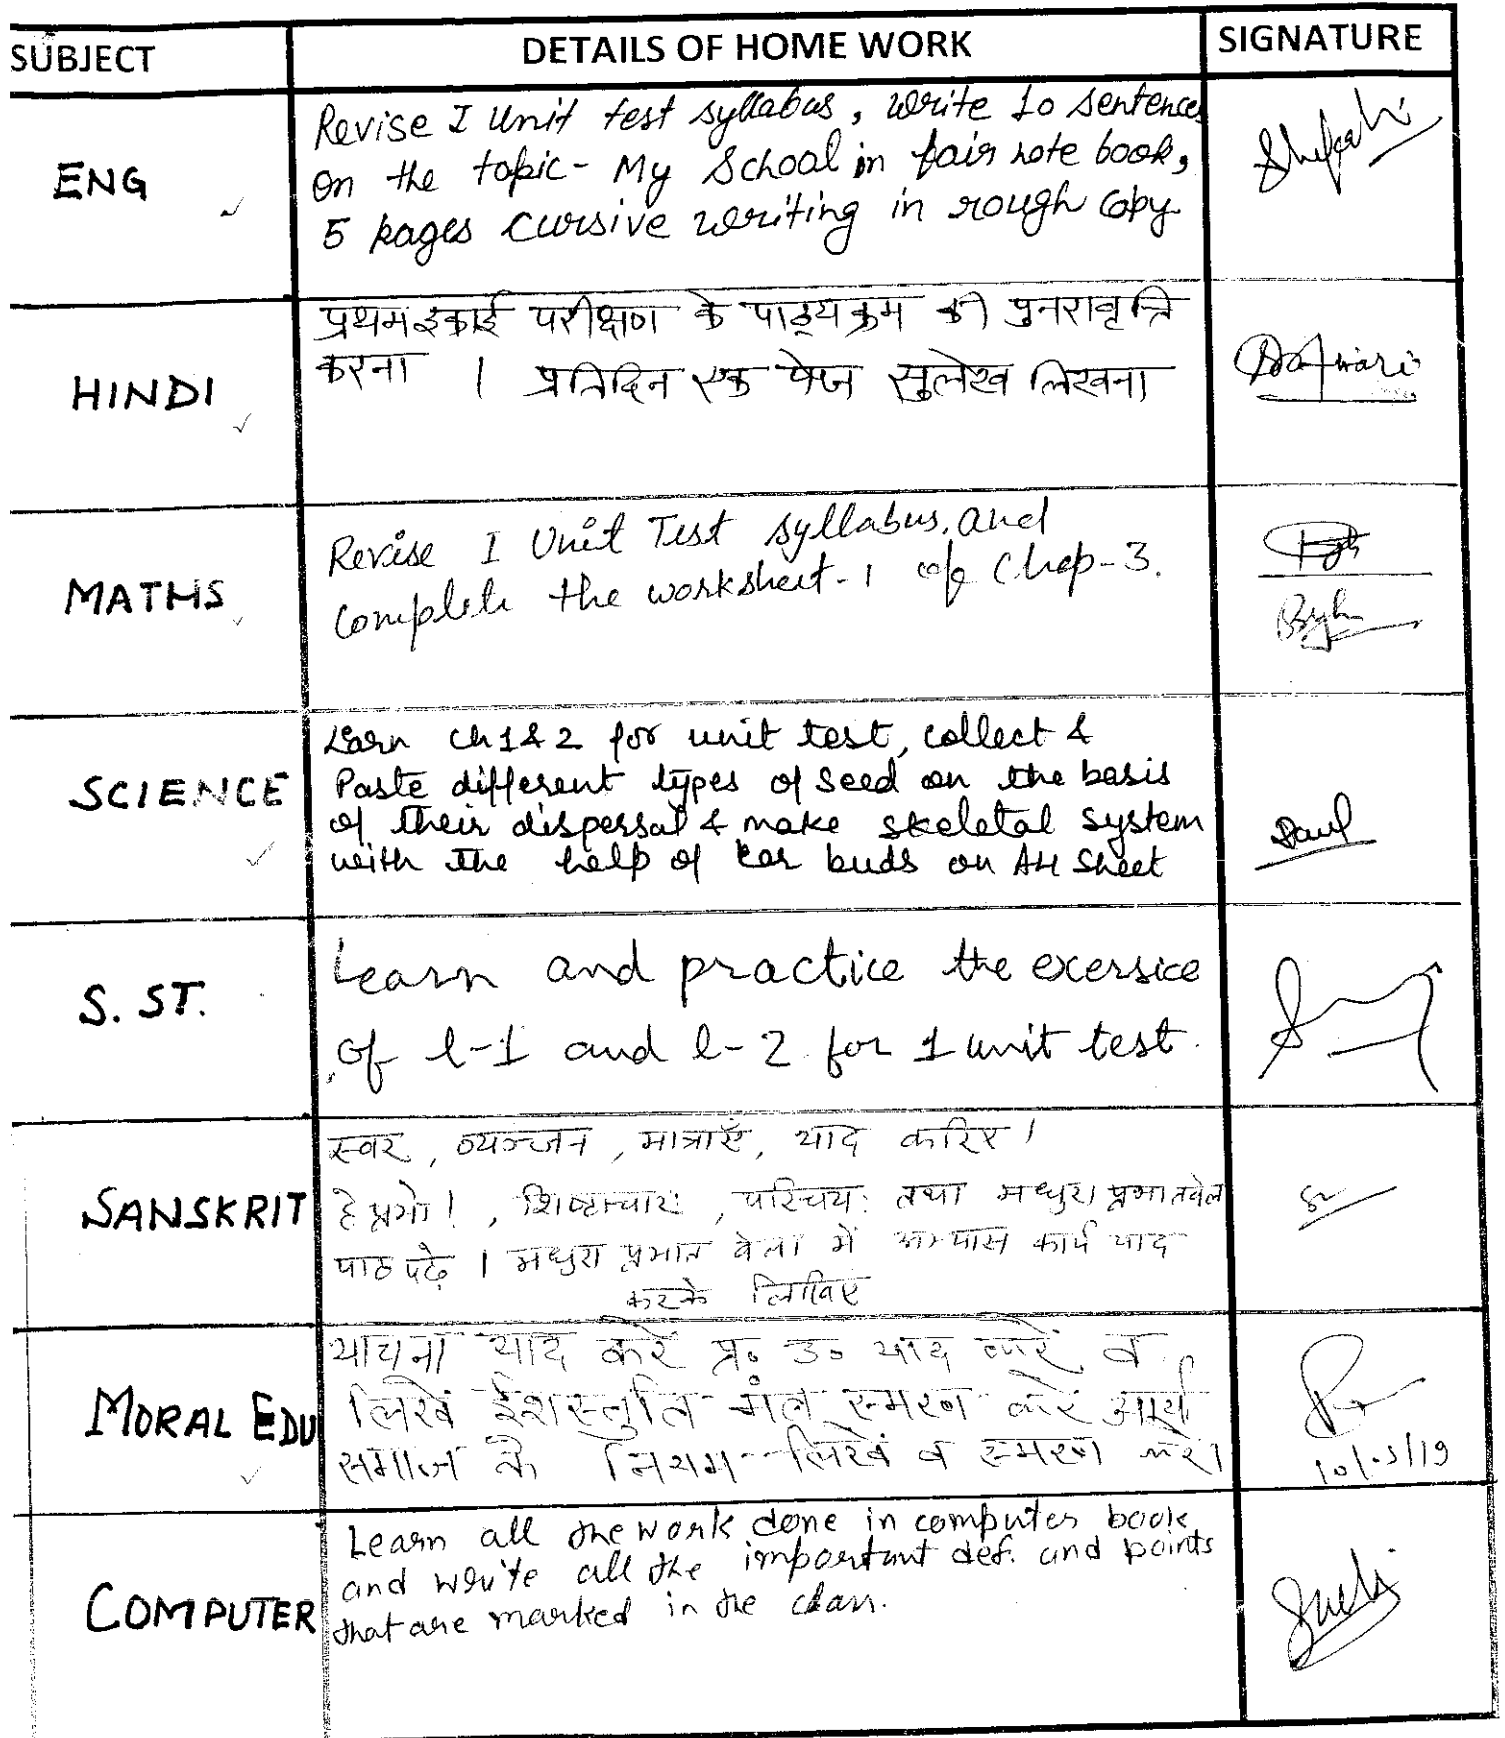 SUBJECT
DETAILS OF HOME WORK
SIGNATURE
ENG
Revise I Unit test syllabus, write 10 sentences
on the topic- My School in fair note book,
5 pages cursive writing in rough copy.
HINDI
प्रथम इकाई परीक्षण के पाठ्यक्रम की पुनरावृत्ति
करना । प्रतिदिन एक पेज सुलेख लिखना
MATHS
Revise I Unit Test syllabus, and
complete the worksheet-1 of Chap-3.
SCIENCE
Learn ch 1 & 2 for unit test, collect &
Paste different types of seed on the basis
of their dispersal & make skeletal system
with the help of Ear buds on A4 Sheet
S. ST.
Learn and practice the exersice
of l-1 and l-2 for 1 unit test.
SANSKRIT
स्वर, व्यञ्जन, मात्राएँ, याद करिए ।
हे प्रभो!, शिष्टाचारः, परिचयः तथा मधुरा प्रभातवेला
पाठ पढ़े । मधुरा प्रभात वेला में अभ्यास कार्य याद
करके लिखिए
MORAL EDU
याचना याद करें प्र॰ उ॰ याद करें व
लिखें ईशस्तुति मंत्र स्मरण करें आर्य
समाज के नियम लिखें व स्मरण करें।
10/05/19
COMPUTER
Learn all the work done in computer book
and write all the important def. and points
that are marked in the class.